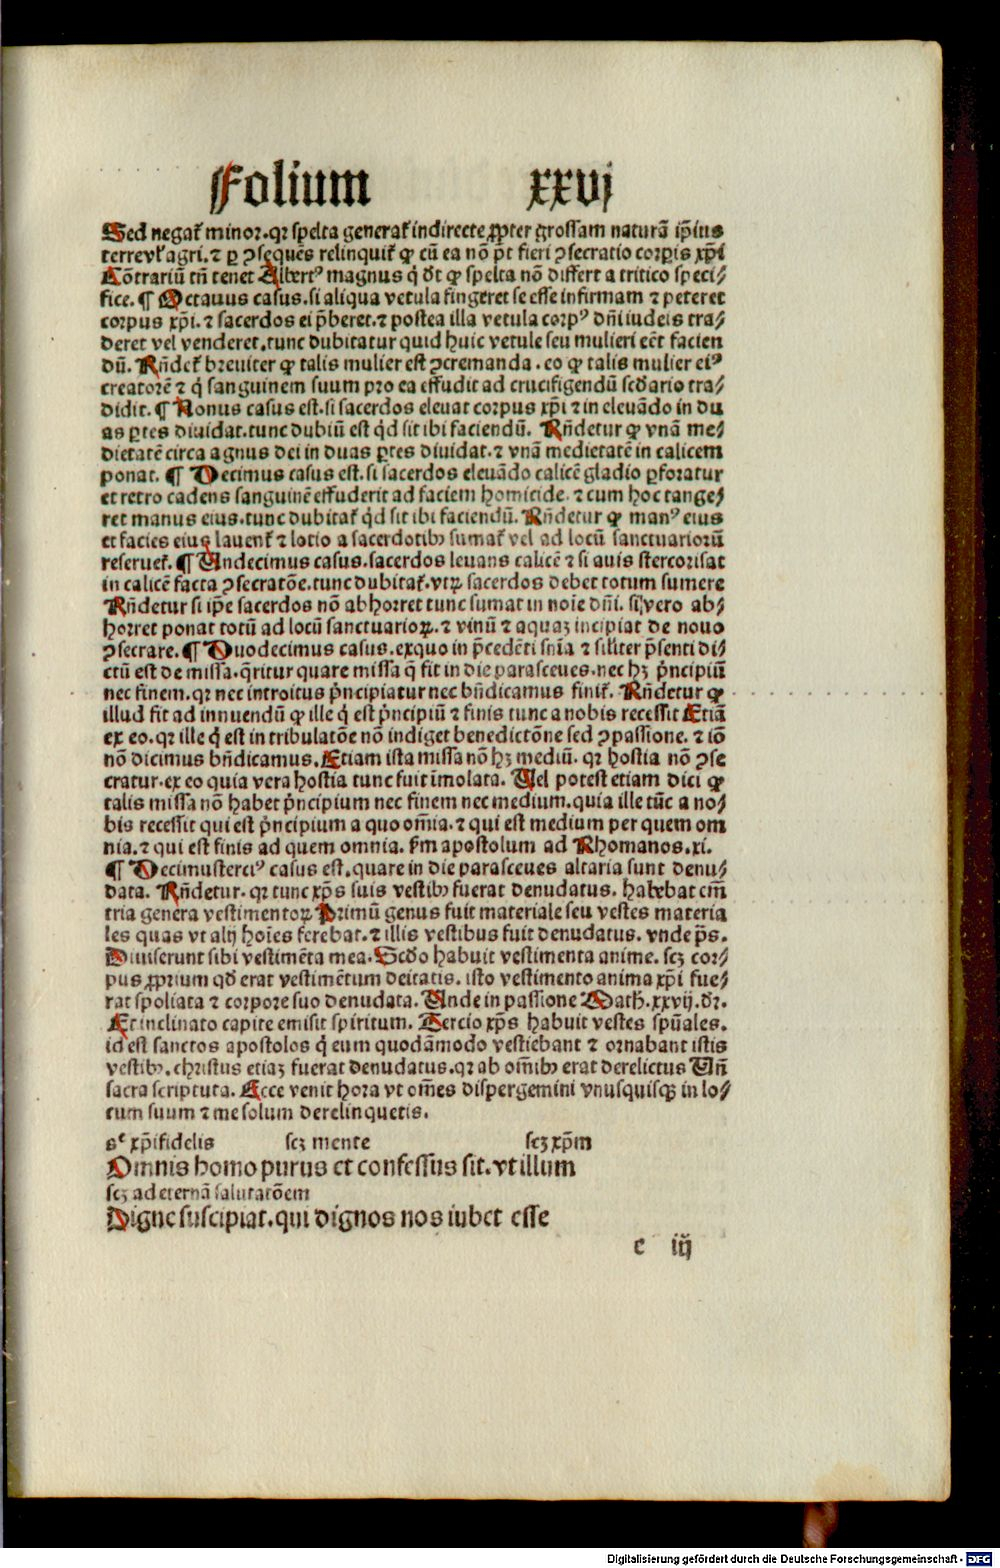 Folium xxvj
Sed negat᷑ minor. qꝛ spelta generat᷑ indirecte ꝓpter grossam naturā ip̄ius
terre vl᷑ agri. ⁊ ꝑ ꝯsequēs relinquit᷑ ꝙ cū ea nō pōt fieri ꝯsecratio corꝑis xp̄i
Cōtrariū tn̄ tenet Albertꝰ magnus q̇ dt̄ ꝙ spelta nō differt a tritico speci⸗
fice. ¶ Octauus casus. si aliqua vetula fingeret se esse infirmam ⁊ peteret
corpus xp̄i. ⁊ sacerdos ei p̄beret. ⁊ postea illa vetula corpꝰ dn̄i iudeis tra⸗
deret vel venderet. tunc dubitatur quid huic vetule seu mulieri eēt facien
dū. Rn̄det᷑ breuiter ꝙ talis mulier est ꝯcremanda. eo ꝙ talis mulier eiꝰ
creatorē ⁊ q̇ sanguinem suum pro ea effudit ad crucifigendū scd̄ario tra⸗
didit. ¶ Nonus casus est. si sacerdos eleuat corpus xp̄i ⁊ in eleuādo in du
as ꝑtes diuidat. tunc dubiū est qd̄ sit ibi faciendū. Rn̄detur ꝙ vnā me⸗
dietatē circa agnus dei in duas ꝑtes diuidat. ⁊ vnā medietatē in calicem
ponat. ¶ Decimus casus est. si sacerdos eleuādo calicē gladio ꝑforatur
et retro cadens sanguinē effuderit ad faciem homicide. ⁊ cum hoc tange⸗
ret manus eius. tunc dubitat᷑ qd̄ sit ibi faciendū. Rn̄detur ꝙ manꝰ eius
et facies eius lauent᷑ ⁊ lotio a sacerdotibꝫ sumat᷑ vel ad locū sanctuariorū
reseruet᷑. ¶ Undecimus casus. sacerdos leuans calicē ⁊ si auis stercorisat
in calicē facta ꝯsecratōe. tunc dubitat᷑. vtꝝ sacerdos debet totum sumere
Rn̄detur si ip̄e sacerdos nō abhorret tunc sumat in noīe dn̄i. si vero ab⸗
horret ponat totū ad locū sanctuarioꝝ. ⁊ vinū ⁊ aquaꝫ incipiat de nouo
ꝯsecrare. ¶ Duodecimus casus. exquo in p̄cedēti sn̄ia ⁊ siliter p̄senti di⸗
ctū est de missa. q̄ritur quare missa q̄ fit in die parasceues. nec hꝫ p̄ncipiū
nec finem. qꝛ nec introitus p̄ncipiatur nec bn̄dicamus finit᷑. Rn̄detur ꝙ
illud fit ad innuendū ꝙ ille q̇ est p̄ncipiū ⁊ finis tunc a nobis recessit Etiā
ex eo. qꝛ ille q̇ est in tribulatōe nō indiget benedictōne sed ꝯpassione. ⁊ iō
nō dicimus bn̄dicamus. Etiam ista missa nō hꝫ mediū. qꝛ hostia nō ꝯse
cratur. ex eo quia vera hostia tunc fuit īmolata. Uel potest etiam dici ꝙ
talis missa nō habet p̄ncipium nec finem nec medium. quia ille tūc a no⸗
bis recessit qui est p̄ncipium a quo om̄ia. ⁊ qui est medium per quem om
nia. ⁊ qui est finis ad quem omnia. ẜm apostolum ad Rhomanos. xi.
¶ Decimusterciꝰ casus est. quare in die parasceues altaria sunt denu⸗
data. Rn̄detur. qꝛ tunc xp̄s suis vestibꝫ fuerat denudatus. habebat em̄
tria genera vestimentoꝝ Primū genus fuit materiale seu vestes materia
les quas vt alij hoīes ferebat. ⁊ illis vestibus fuit denudatus. vnde p̄s.
Diuiserunt sibi vestimēta mea. Scd̄o habuit vestimenta anime. scꝫ cor⸗
pus ꝓprium qd̄ erat vestimētum deitatis. isto vestimento anima xp̄i fue⸗
rat spoliata ⁊ corpore suo denudata. Unde in passione Math̄. xxvij. dr̄.
Et inclinato capite emisit spiritum. Tercio xp̄s habuit vestes spūales.
id est sanctos apostolos q̇ eum quodāmodo vestiebant ⁊ ornabant istis
vestibꝫ. christus etiaꝫ fuerat denudatus. qꝛ ab om̄ibꝫ erat derelictus Un̄
sacra scriptura. Ecce venit hora vt om̄es dispergemini vnusquisqꝫ in lo⸗
cum suum ⁊ me solum derelinquetis.
sͨ xp̄ifidelis scꝫ mente scꝫ xp̄m
Omnis homo purus et confessus sit. vt illum
scꝫ ad eternā salutatōem
Digne suscipiat. qui dignos nos iubet esse
e iij
Digitalisierung gefördert durch die Deutsche Forschungsgemeinschaft - DFG